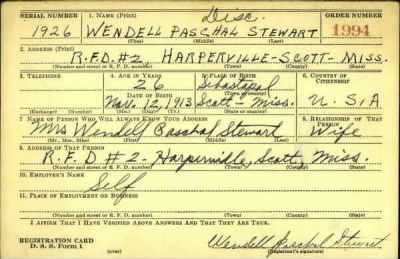 Disc.
SERIAL NUMBER 1. NAME (Print) ORDER NUMBER
1926 WENDELL PASCHAL STEWART 1994
(First) (Middle) (Last)
2. ADDRESS (Print)
R.F.D. #2 HARPERVILLE-SCOTT-MISS.
(Number and street or R. F. D. number) (Town) (County) (State)
3. TELEPHONE 4. AGE IN YEARS 5. PLACE OF BIRTH 6. COUNTRY OF CITIZENSHIP
26 Sebastapol
DATE OF BIRTH (Town or county)
Nov. 12, 1913 Scott-Miss. U.S.A
(Exchange) (Number) (Mo.) (Day) (Yr.) (State or country)
7. NAME OF PERSON WHO WILL ALWAYS KNOW YOUR ADDRESS 8. RELATIONSHIP OF THAT PERSON
Mrs Wendell Paschal Stewart Wife
(Mr., Mrs., Miss) (First) (Middle) (Last)
9. ADDRESS OF THAT PERSON
R.F.D #2-Harperville, Scott, Miss.
(Number and street or R. F. D. number) (Town) (County) (State)
10. EMPLOYER'S NAME
Self
11. PLACE OF EMPLOYMENT OR BUSINESS
(Number and street or R. F. D. number) (Town) (County) (State)
I AFFIRM THAT I HAVE VERIFIED ABOVE ANSWERS AND THAT THEY ARE TRUE.
REGISTRATION CARD
D. S. S. Form 1 (over) Wendell Paschal Stewart
(Registrant's signature)